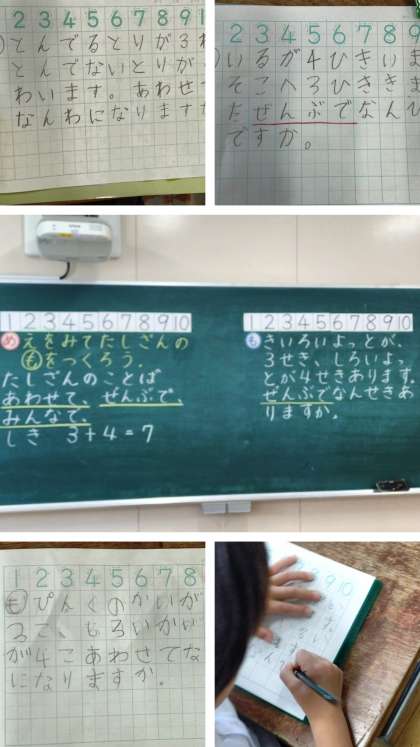 2 3 4 5 6 7 8 9 1
とんでるとりが3わ
とんでないとりが
わいます。あわせ
なんわになります
2 3 4 5 6 7 8 9
いるが4ひきいま
そこへ3ひききま
たぜんぶでなんひ
ですか。
1 2 3 4 5 6 7 8 9 10
めえをみてたしざんの
もをつくろう。
たしざんのことば
あわせて、ぜんぶで、
みんなで
しき 3+4=7
1 2 3 4 5 6 7 8 9 10
もきいろいよっとが、
3せき、しろいよっ
とが4せきあります。
ぜんぶでなんせきあ
りますか。
1 2 3 4 5 6 7 8
もぴんくのかいが
3こ、しろいかい
が4こあわせてな
になりますか。